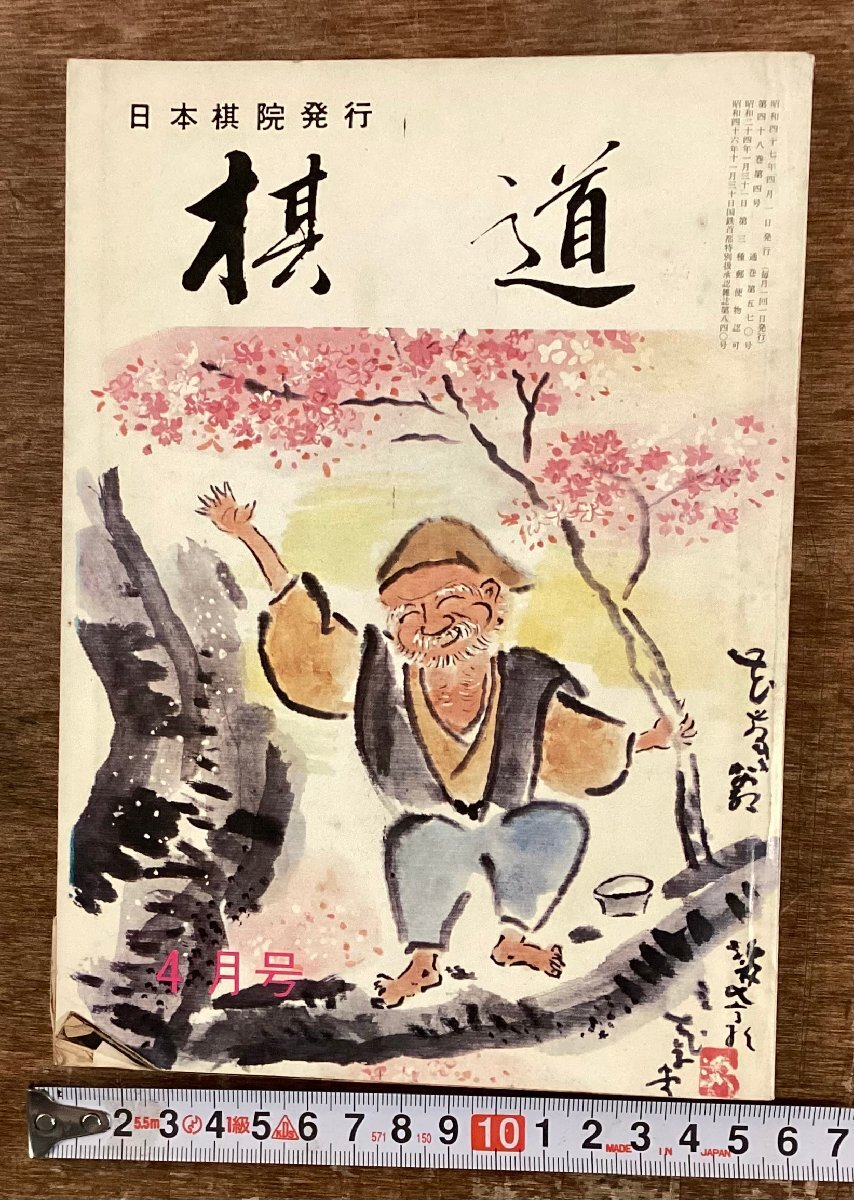 日本棋院発行
棋道
昭和四十七年四月一日発行（毎月一回一日発行）
第四十八巻第四号 通巻第五七〇号
昭和二十四年一月三十一日第三種郵便物認可
昭和四十六年十一月三十日国鉄首都特別扱承認雑誌第八四〇号
4月号
2 5.5m 3 4 1級 5 KDS 6 7 571 8 150 9 10 1 2 MADE 3 IN 4 JAPAN 5 6 7